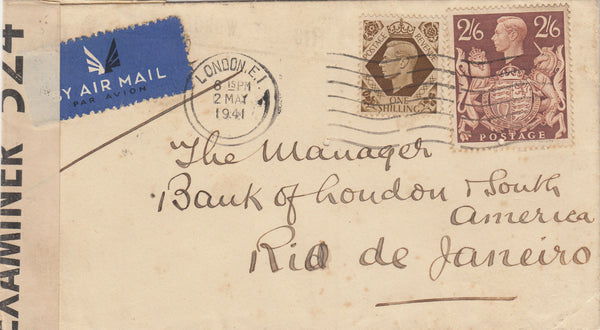 EXAMINER 524
BY AIR MAIL
PAR AVION
LONDON. E.1
8 15 PM
2 MAY
1941
POSTAGE REVENUE
ONE
SHILLING
2/6 2/6
POSTAGE
The Manager
Bank of London & South
America
Rio de Janeiro